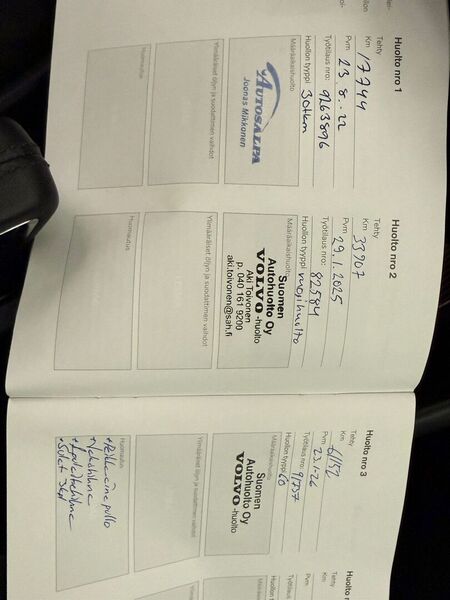 Huolto nro 1
Tehty
Km 17744
Pvm 23.8.22
Työtilaus nro: 9263896
Huollon tyyppi 30tkm
Määräaikaishuolto
AUTOSALPA
Joonas Mikkonen
Ylimääräiset öljyn ja suodattimen vaihdot
Huomautus
Huolto nro 2
Tehty
Km 33907
Pvm 29.1.2025
Työtilaus nro: 82584
Huollon tyyppi vuosihuolto
Määräaikaishuolto
Suomen
Autohuolto Oy
VOLVO -huolto
Aki Toivonen
p. 040 161 9200
aki.toivonen@sah.fi
Ylimääräiset öljyn ja suodattimen vaihdot
Huomautus
Huolto nro 3
Tehty
Km 61152
Pvm 23.1-26
Työtilaus nro: 91757
Huollon tyyppi 60
Määräaikaishuolto
Suomen
Autohuolto Oy
VOLVO -huolto
Ylimääräiset öljyn ja suodattimen vaihdot
Huomautus
pullo
Huolto nro
Tehty
Km
Pvm
Työtilaus
Huollon